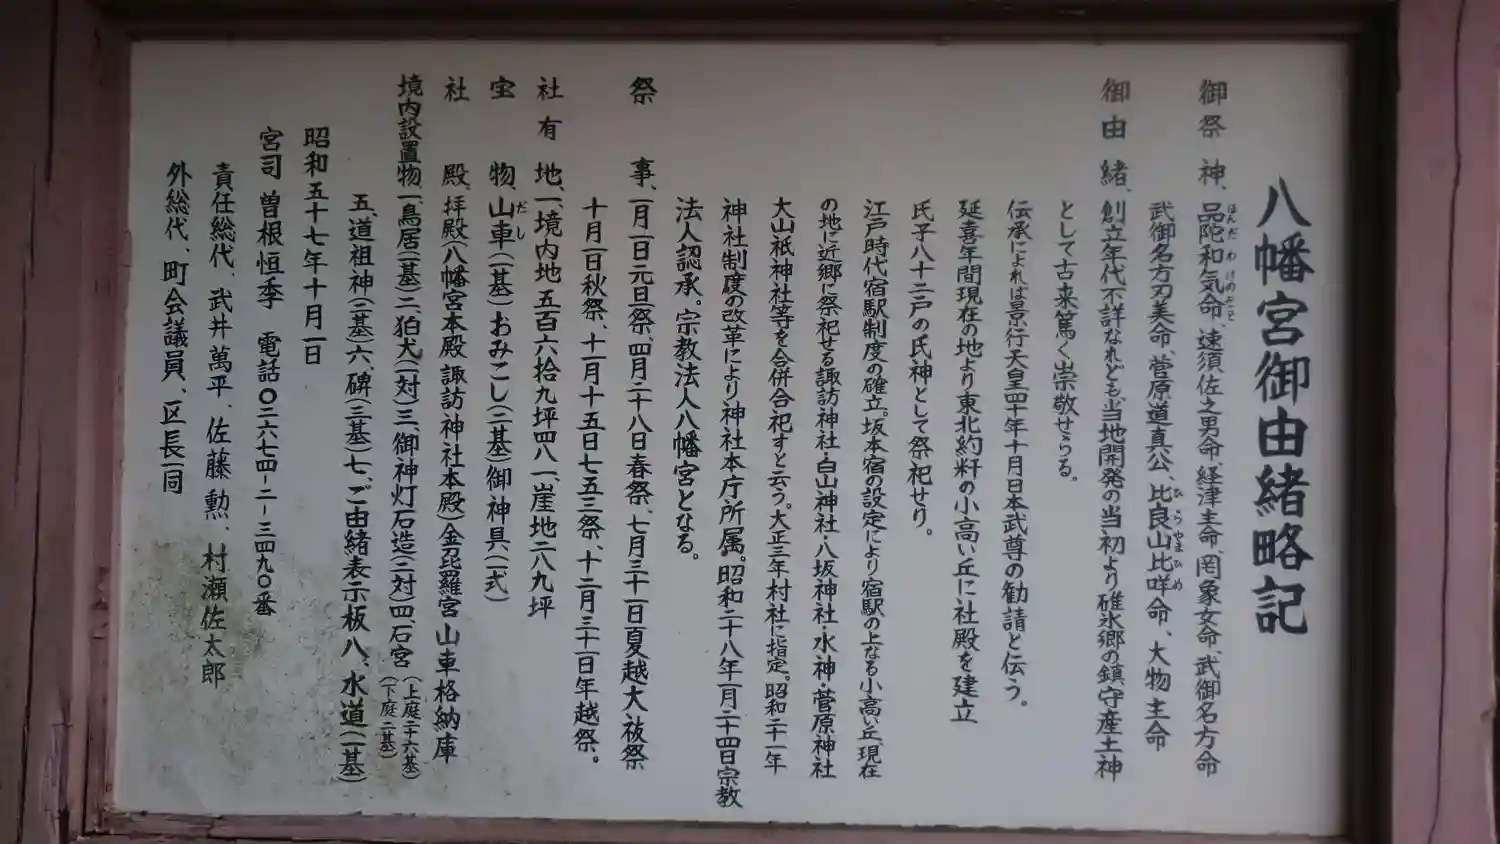 八幡宮御由緒略記
御祭神、品陀和気命、速須佐之男命、経津主命、罔象女命、武御名方命
ほんだわけのみこと
武御名方刃美命、菅原道真公、比良山比咩命、大物主命
ひらやまひめ
御由緒、創立年代不詳なれども、当地開発の当初より碓氷郷の鎮守産土神
として古来篤く崇敬せらる。
伝承によれば景行天皇四十年十月日本武尊の勧請と伝う。
延喜年間現在の地より東北約粁の小高い丘に社殿を建立
氏子八十二戸の氏神として祭祀せり。
江戸時代宿駅制度の確立。坂本宿の設定により宿駅の上なる小高い丘、現在
の地に近郷に祭祀せる諏訪神社・白山神社・八坂神社・水神・菅原神社
大山祇神社等を合併合祀すと云う。大正三年村社に指定。昭和二十一年
神社制度の改革により神社本庁所属。昭和二十八年一月二十四日宗教
法人認承。宗教法人八幡宮となる。
祭事、一月一日元旦祭、四月二十八日春祭、七月三十一日夏越大祓祭
十月一日秋祭、十一月十五日七五三祭、十二月三十一日年越祭。
社有地、一、境内地五百六拾九坪四八一、崖地二八九坪
宝物、山車(一基)おみこし(二基)御神具(一式)
だし
社殿、拝殿(八幡宮本殿諏訪神社本殿)金刀比羅宮山車格納庫
境内設置物、一、鳥居(一基)二、狛犬(一対)三、御神灯石造(二対)四、石宮(上庭二十六基)(下庭二基)
五、道祖神(二基)六、碑(三基)七、ご由緒表示板八、水道(一基)
昭和五十七年十月一日
宮司 曽根恒季 電話〇二六七四-二-三四九〇番
責任総代、武井萬平、佐藤勲、村瀬佐太郎
外総代、町会議員、区長一同